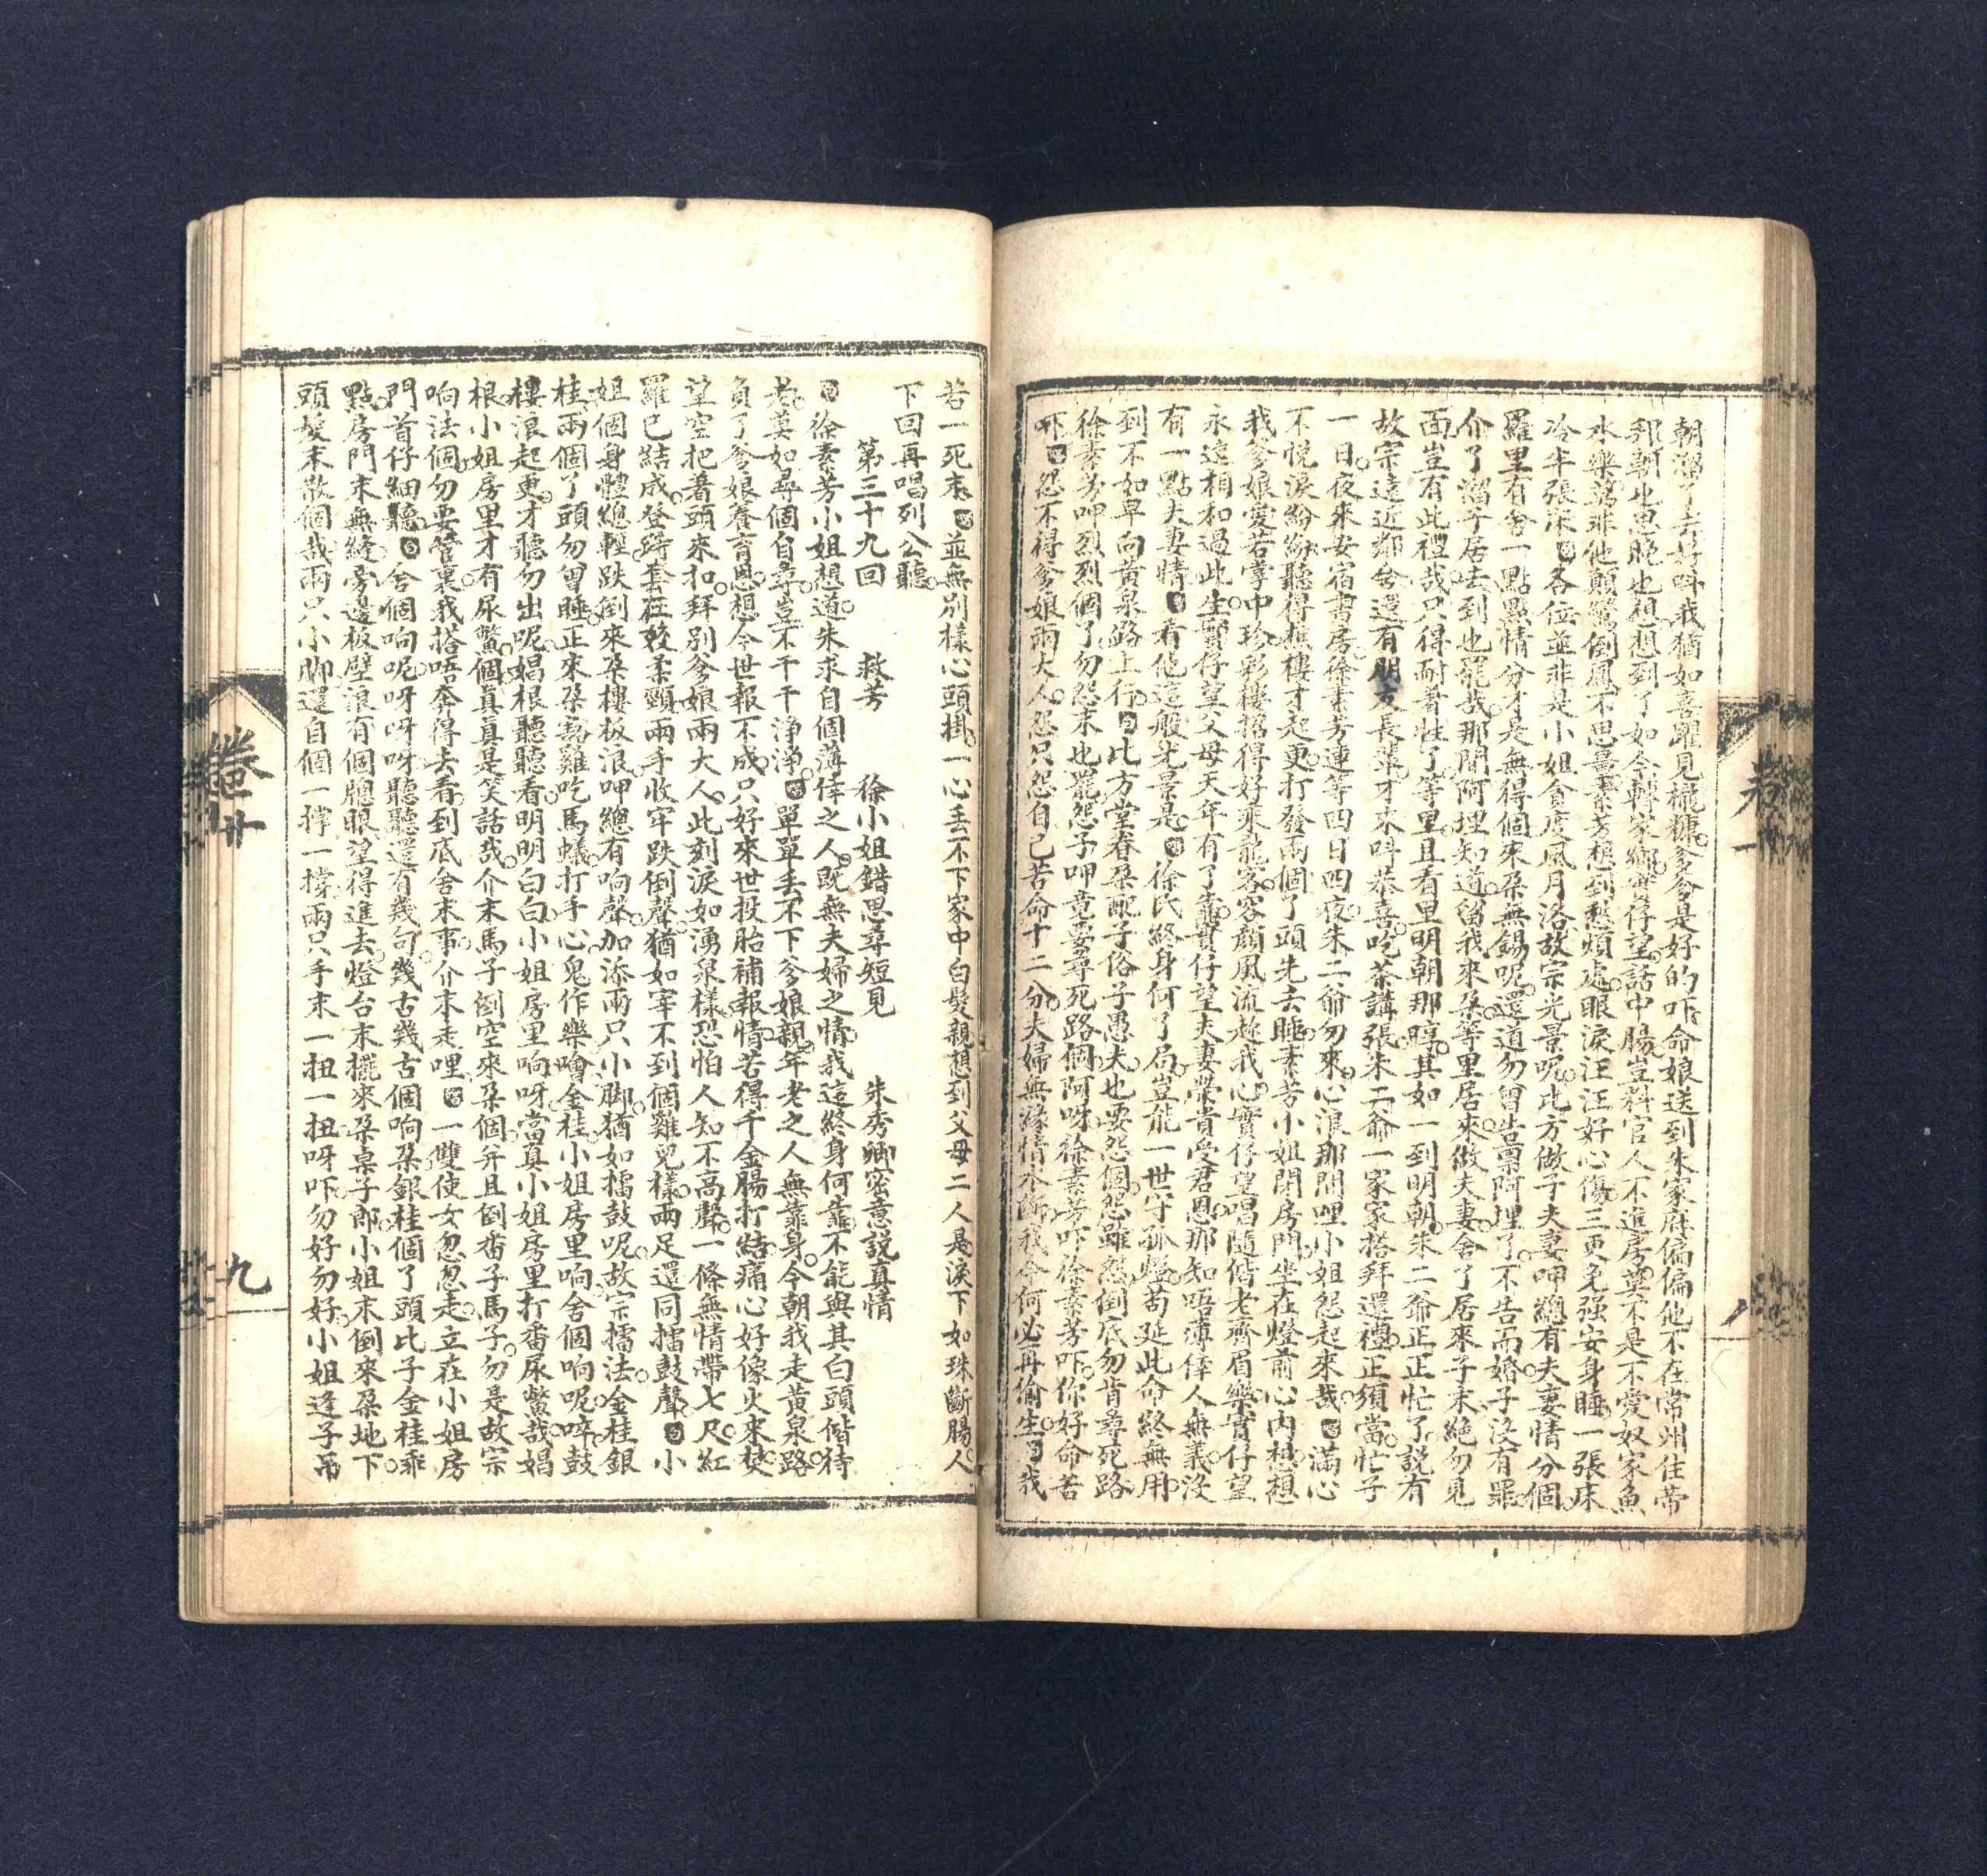 朝溜了去好呌我猶如喜躍見櫳糠爹爹是好的吓命娘送到朱家府偏偏他不在常州住帶
朝也思晚也想想到了如今轉家鄉實仔望話中腸豈料官人不進房莫不是不愛奴家魚
水樂莫非他顛鸞倒鳳不思量素芳想到愁煩處眼淚汪汪好心傷三更免强安身睡一張床
冷半張床各位並非是小姐貪度風月洛故宗光景呢此方做子夫妻呷總有夫妻情分個
羅里有舍一點點情分才是無得個來朶無錫呢還道勿曾告禀阿埋了不告而婚子没有罪
介了溜子居去到也罷哉那間阿埋知道留我來朶等里居來做夫妻舍了居來子末絶勿見
面豈有此禮哉只得耐著性了等里且看里明朝那䁨其如一到明朝朱二爺正正忙了説有
故宗遠近鄰舍還有朋友長輩才來呌恭喜吃茶講張朱二爺一家家搭拜還禮正須當忙子
一日夜來安宿書房徐素芳連等四日四夜朱二爺勿來心浪那間哩小姐怨起來哉滿心
不悦淚紛紛聽得樵樓才起更打發兩個了頭先去睡素芳小姐閉房門坐在燈前心内想想
我爹娘愛若掌中珍彩樓招得好乘龍客容顔風流趁我心實仔望唱隨偕老齊眉樂實仔望
永遠相和過此生實仔望父母天年有了靠實仔望夫妻榮貴受君恩那知唔薄倖人無義没
有一點夫妻情看他這般光景是徐氏終身何了局豈能一世守孤燈苟延此命終無用
到不如早向黄泉路上行此方堂眷朶配子俗子愚夫也要怨個怨雖怨到底勿肯尋死路
徐素芳呷烈烈個了勿怨末也罷怨子呷竟要尋死路個阿呀徐素芳吓徐素芳吓你好命苦
吓怨不得爹娘兩大人怨只怨自己苦命十二分夫婦無緣情永斷我今何必再偷生我
卷
八
若一死末並無别樣心頭掛一心丢不下家中白髮親想到父母二人是淚下如珠斷腸人
下回再唱列公聽
第三十九回 救芳 徐小姐錯思尋短見 朱秀卿密意説真情
徐素芳小姐想道朱求自個薄倖之人既無夫婦之情我這終身何靠不能與其白頭偕待
老莫如尋個自尋豈不干干淨淨單單丢不下爹娘親年老之人無靠身今朝我走黄泉路
負了爹娘養育恩想今世報不成只好來世投胎補報情苦得千金腸打結痛心好像火來焚
望空把著頭來扣拜别爹娘兩大人此刻淚如湧泉樣恐怕人知不高聲一條無情帶七尺紅
羅已結成登踌套在較柔頸兩手收牢跌倒聲猶如宰不到個雞兒樣兩足還同擂鼓聲小
姐個身體總輕跌倒來朶樓板浪呷總有响聲加添兩只小脚猶如擂鼓呢故宗擂法金桂銀
桂兩個了頭勿曾睡正來朶窩雞吃馬蟻打手心鬼作樂噲金桂小姐房里响舍個响呢啐鼓
樓浪起更才聽勿出呢娼根聽聽看明明白白小姐房里响呀當真小姐房里打番尿鱉哉娼
根小姐房里才有尿鱉個真真是笑話哉介末馬子倒空來朶個弁且倒番子馬子勿是故宗
响法個勿要管裏我搭唔奔得去看到底舍末事介末走哩一雙使女忽忽走立在小姐房
門首仔細聽舍個响呢呀呀呀聽聽還有幾句幾古幾古個响朶銀桂個了頭比子金桂乖
點房門末無縫旁邊板壁浪有個膖眼望得進去燈台末擺來朶桌子郎小姐末倒來朶地下
頭髮末散個哉兩只小脚還自個一撑一撑兩只手末一扭一扭呀吓勿好勿好小姐逢子吊
卷廿
九